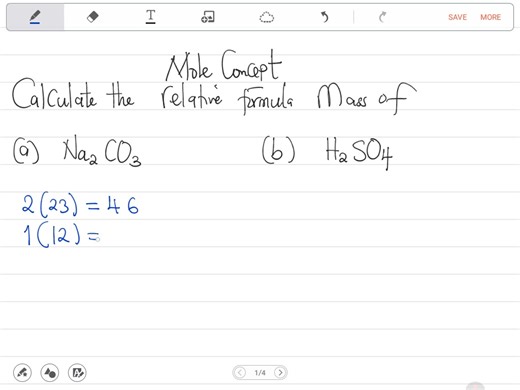 T
SAVE MORE
Mole Concept
Calculate the relative formula Mass of
(a) Na₂CO₃ (b) H₂SO₄
2(23) = 46
1(12) =
A
1/4